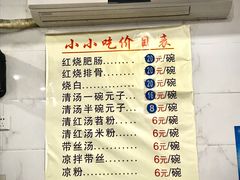 小小吃价目表
红烧肥肠……20元/碗
红烧排骨……20元/碗
烧白……20元/碗
清汤一碗元子……16元/碗
清汤半碗元子……8元/碗
清红汤苕粉……6元/碗
清红汤米粉……6元/碗
带丝汤……6元/碗
凉拌带丝……6元/碗
凉粉……6元/碗